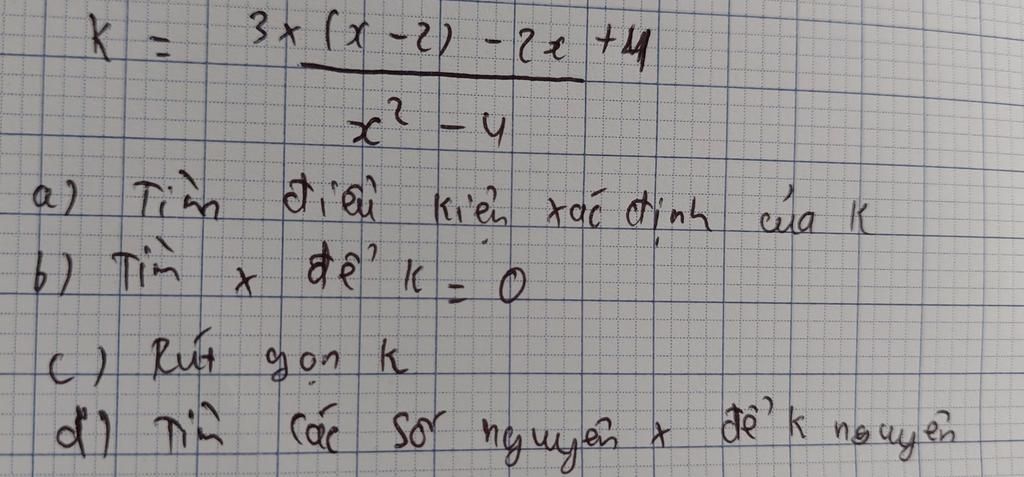 K = 3x (x - 2) - 2x + 4
x² - 4
a) Tìm điều kiện xác định của K
b) Tìm x để K = 0
c) Rút gọn K
d) Tìm các số nguyên x để K nguyên